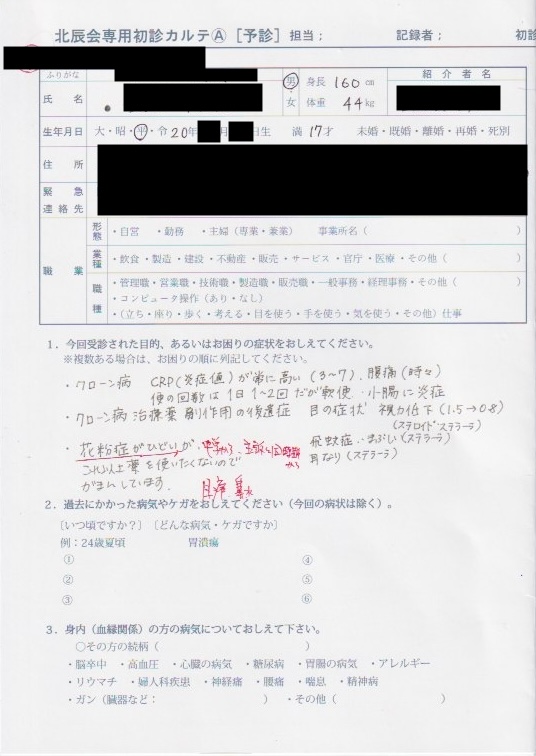 北辰会専用初診カルテⒶ［予診］担当； 記録者； 初診
ふりがな
氏 名
男・女
身長 160 cm
体重 44 kg
紹介者名
生年月日 大・昭・平・令 20年 月 日生 満 17才 未婚・既婚・離婚・再婚・死別
住 所
緊 急
連絡先
職 業
形態 ・自営 ・勤務 ・主婦（専業・兼業） 事業所名（ ）
業種 ・飲食・製造・建設・不動産・販売・サービス・官庁・医療・その他（ ）
職種 ・管理職・営業職・技術職・製造職・販売職・一般事務・経理事務・その他（ ）
・コンピュータ操作（あり・なし）
・（立ち・座り・歩く・考える・目を使う・手を使う・気を使う・その他）仕事
1．今回受診された目的、あるいはお困りの症状をおしえてください。
※複数ある場合は、お困りの順に列記してください。
・クローン病 CRP(炎症値)が常に高い(3〜7)、腹痛(時々)
便の回数は1日1〜2回だが軟便、小腸に炎症
・クローン病治療薬副作用の後遺症 目の症状 視力低下(1.5→0.8)
(ステロイド ステラーラ)
飛蚊症・まぶしい(ステラーラ)
耳なり(ステラーラ)
・花粉症がひどいが、
これ以上薬を使いたくないので
がまんしています。
2．過去にかかった病気やケガをおしえてください（今回の病状は除く）。
［いつ頃ですか？］［どんな病気・ケガですか］
例：24歳夏頃 胃潰瘍
① ④
② ⑤
③ ⑥
3．身内（血縁関係）の方の病気についておしえて下さい。
〇その方の続柄（ ）
・脳卒中 ・高血圧 ・心臓の病気 ・糖尿病 ・胃腸の病気 ・アレルギー
・リウマチ ・婦人科疾患 ・神経痛 ・腰痛 ・喘息 ・精神病
・ガン（臓器など： ） ・その他（ ）